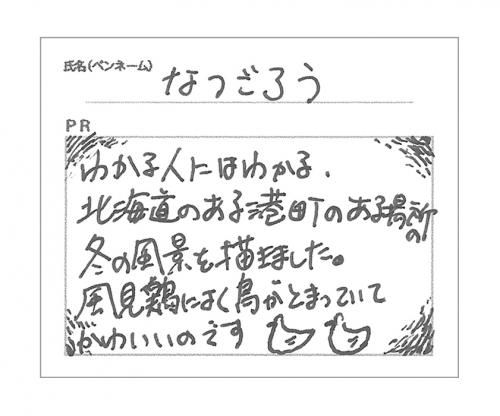 氏名(ペンネーム)
なつごろう
PR
わかる人にはわかる、
北海道のある港町のある場所の
冬の風景を描きました。
風見鶏によく鳥がとまっていて
かわいいのです